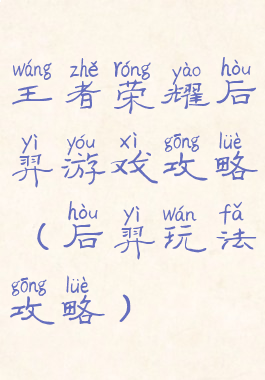 wáng zhě róng yào hòu
王者荣耀后
yì yóu xì gōng lüè
羿游戏攻略
hòu yì wán fǎ
（后羿玩法
gōng lüè
攻略）